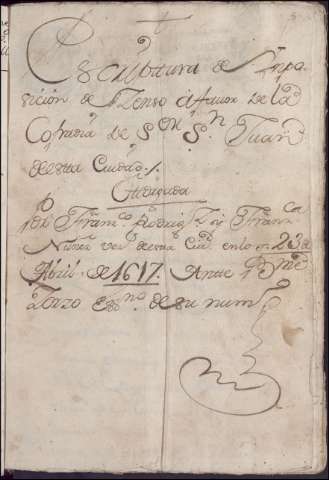 Escriptura de Ympo
sición de Zenso á favor de la
Cofradia de Sn Sn Juan
de esta Ciudad
Otorgada
por Franco Rodrigz y Franca
Nuñez vezs de esta Ciud en los 23 de
Abril de 1617. Ante Bme
Zarzo Essno de su numo